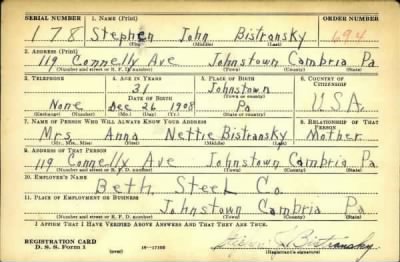 SERIAL NUMBER 1. NAME (Print) ORDER NUMBER
178 Stephen John Bistransky 694
(First) (Middle) (Last)
2. ADDRESS (Print)
119 Connelly Ave Johnstown Cambria Pa
(Number and street or R. F. D. number) (Town) (County) (State)
3. TELEPHONE 4. AGE IN YEARS 5. PLACE OF BIRTH 6. COUNTRY OF CITIZENSHIP
31 Johnstown
DATE OF BIRTH (Town or county)
None Dec. 26 1908 Pa U.S.A.
(Exchange) (Number) (Mo.) (Day) (Yr.) (State or country)
7. NAME OF PERSON WHO WILL ALWAYS KNOW YOUR ADDRESS 8. RELATIONSHIP OF THAT PERSON
Mrs. Anna Nettie Bistransky Mother
(Mr., Mrs., Miss) (First) (Middle) (Last)
9. ADDRESS OF THAT PERSON
119 Connelly Ave Johnstown Cambria Pa.
(Number and street or R. F. D. number) (Town) (County) (State)
10. EMPLOYER'S NAME
Beth. Steel Co.
11. PLACE OF EMPLOYMENT OR BUSINESS
Johnstown Cambria Pa
(Number and street or R. F. D. number) (Town) (County) (State)
I AFFIRM THAT I HAVE VERIFIED ABOVE ANSWERS AND THAT THEY ARE TRUE.
REGISTRATION CARD
D. S. S. Form 1 (over) 16-17105 Bistransky
(Registrant's signature)